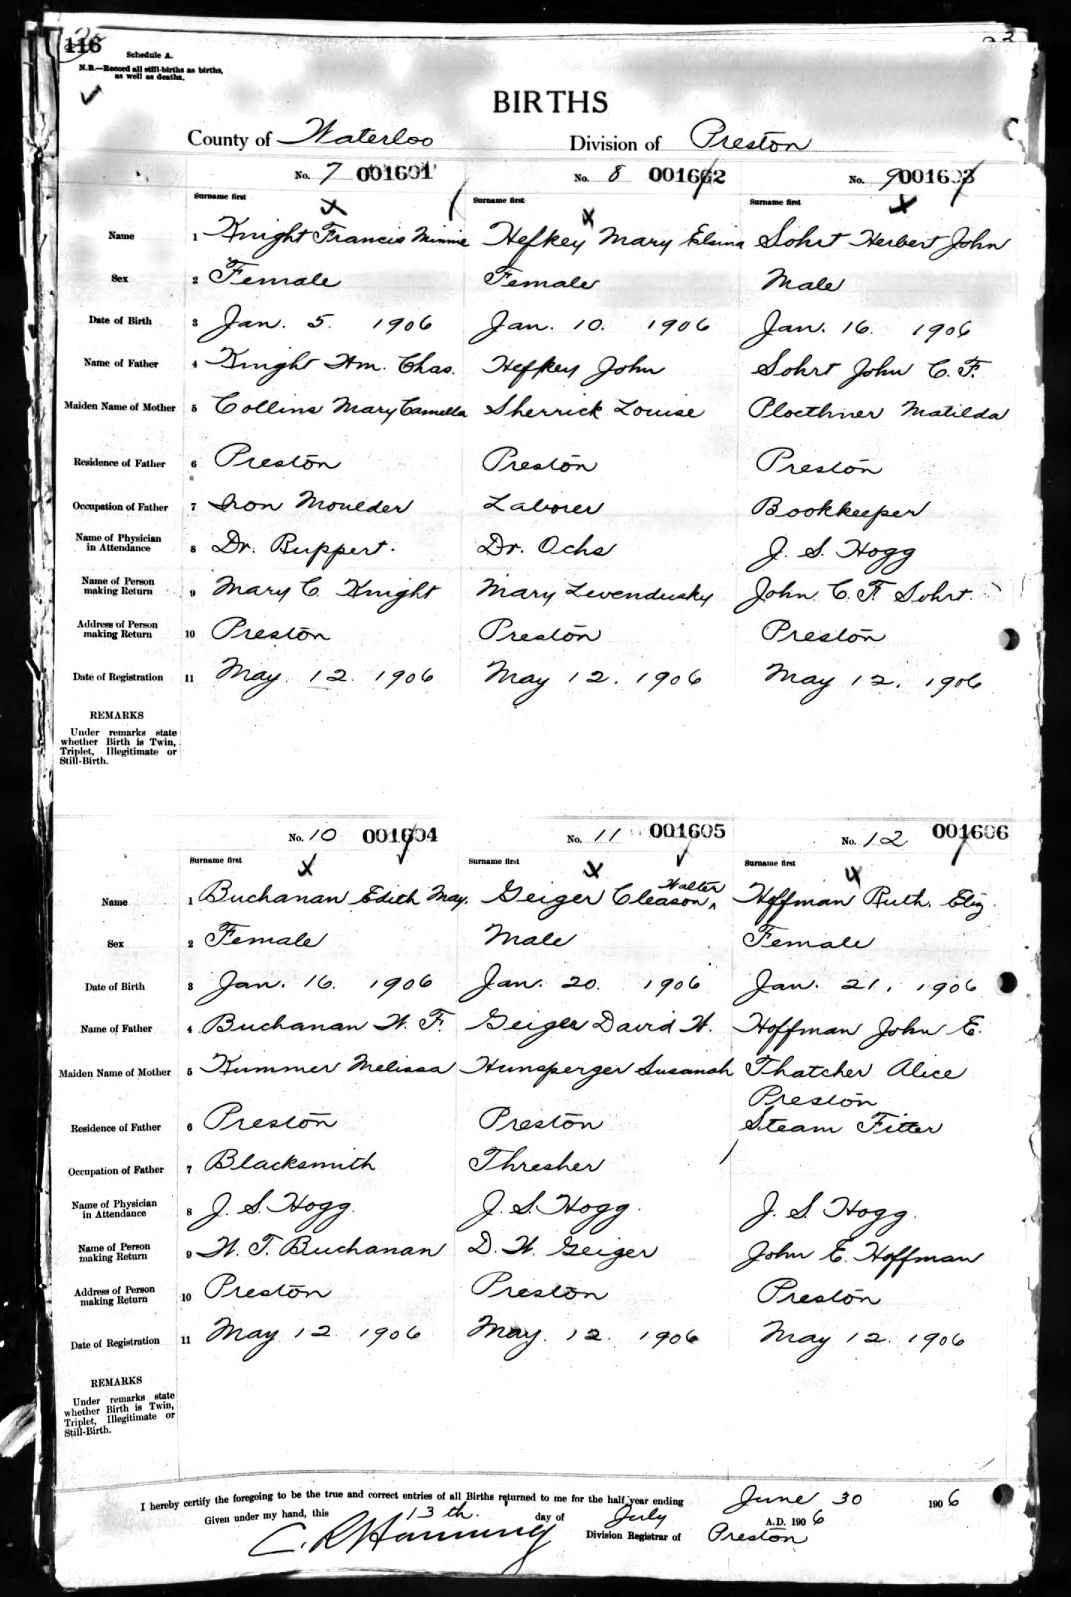 116
Schedule A.
N.B.—Record all still-births as births,
as well as deaths.
BIRTHS
County of Waterloo Division of Preston
No. 7 001601 No. 8 001602 No. 9 001603
Surname first Surname first Surname first
Name 1 Knight Francis Minnie Hefkey Mary Elsina Sohrt Herbert John
Sex 2 Female Female Male
Date of Birth 3 Jan. 5. 1906 Jan. 10. 1906 Jan. 16. 1906
Name of Father 4 Knight Wm. Chas. Hefkey John Sohrt John C. F.
Maiden Name of Mother 5 Collins Mary Camella Sherrick Louise Ploethner Matilda
Residence of Father 6 Preston Preston Preston
Occupation of Father 7 Iron Moulder Laborer Bookkeeper
Name of Physician
in Attendance 8 Dr. Ruppert. Dr. Ochs J. S. Hogg
Name of Person
making Return 9 Mary C. Knight Mary Levendusky John C. F. Sohrt.
Address of Person
making Return 10 Preston Preston Preston
Date of Registration 11 May 12 1906 May 12. 1906 May 12. 1906
REMARKS
Under remarks state
whether Birth is Twin,
Triplet, Illegitimate or
Still-Birth.
No. 10 001604 No. 11 001605 No. 12 001606
Surname first Surname first Surname first
Walter
Name 1 Buchanan Edith May. Geiger Cleason Hoffman Ruth. Eliz.
Sex 2 Female Male Female
Date of Birth 3 Jan. 16. 1906 Jan. 20. 1906 Jan. 21, 1906
Name of Father 4 Buchanan W. F. Geiger David W. Hoffman John E.
Maiden Name of Mother 5 Kummer Melissa Hunsperger Susanah Thatcher Alice
Preston
Residence of Father 6 Preston Preston Steam Fitter
Occupation of Father 7 Blacksmith Thresher
Name of Physician
in Attendance 8 J. S. Hogg. J. S. Hogg. J. S. Hogg.
Name of Person
making Return 9 W. F. Buchanan D. W. Geiger John E. Hoffman
Address of Person
making Return 10 Preston Preston Preston
Date of Registration 11 May 12 1906 May. 12. 1906 May 12. 1906
REMARKS
Under remarks state
whether Birth is Twin,
Triplet, Illegitimate or
Still-Birth.
I hereby certify the foregoing to be the true and correct entries of all Births returned to me for the half year ending June 30 1906
Given under my hand, this 13th. day of July A.D. 1906
C. R. Hanning Division Registrar of Preston